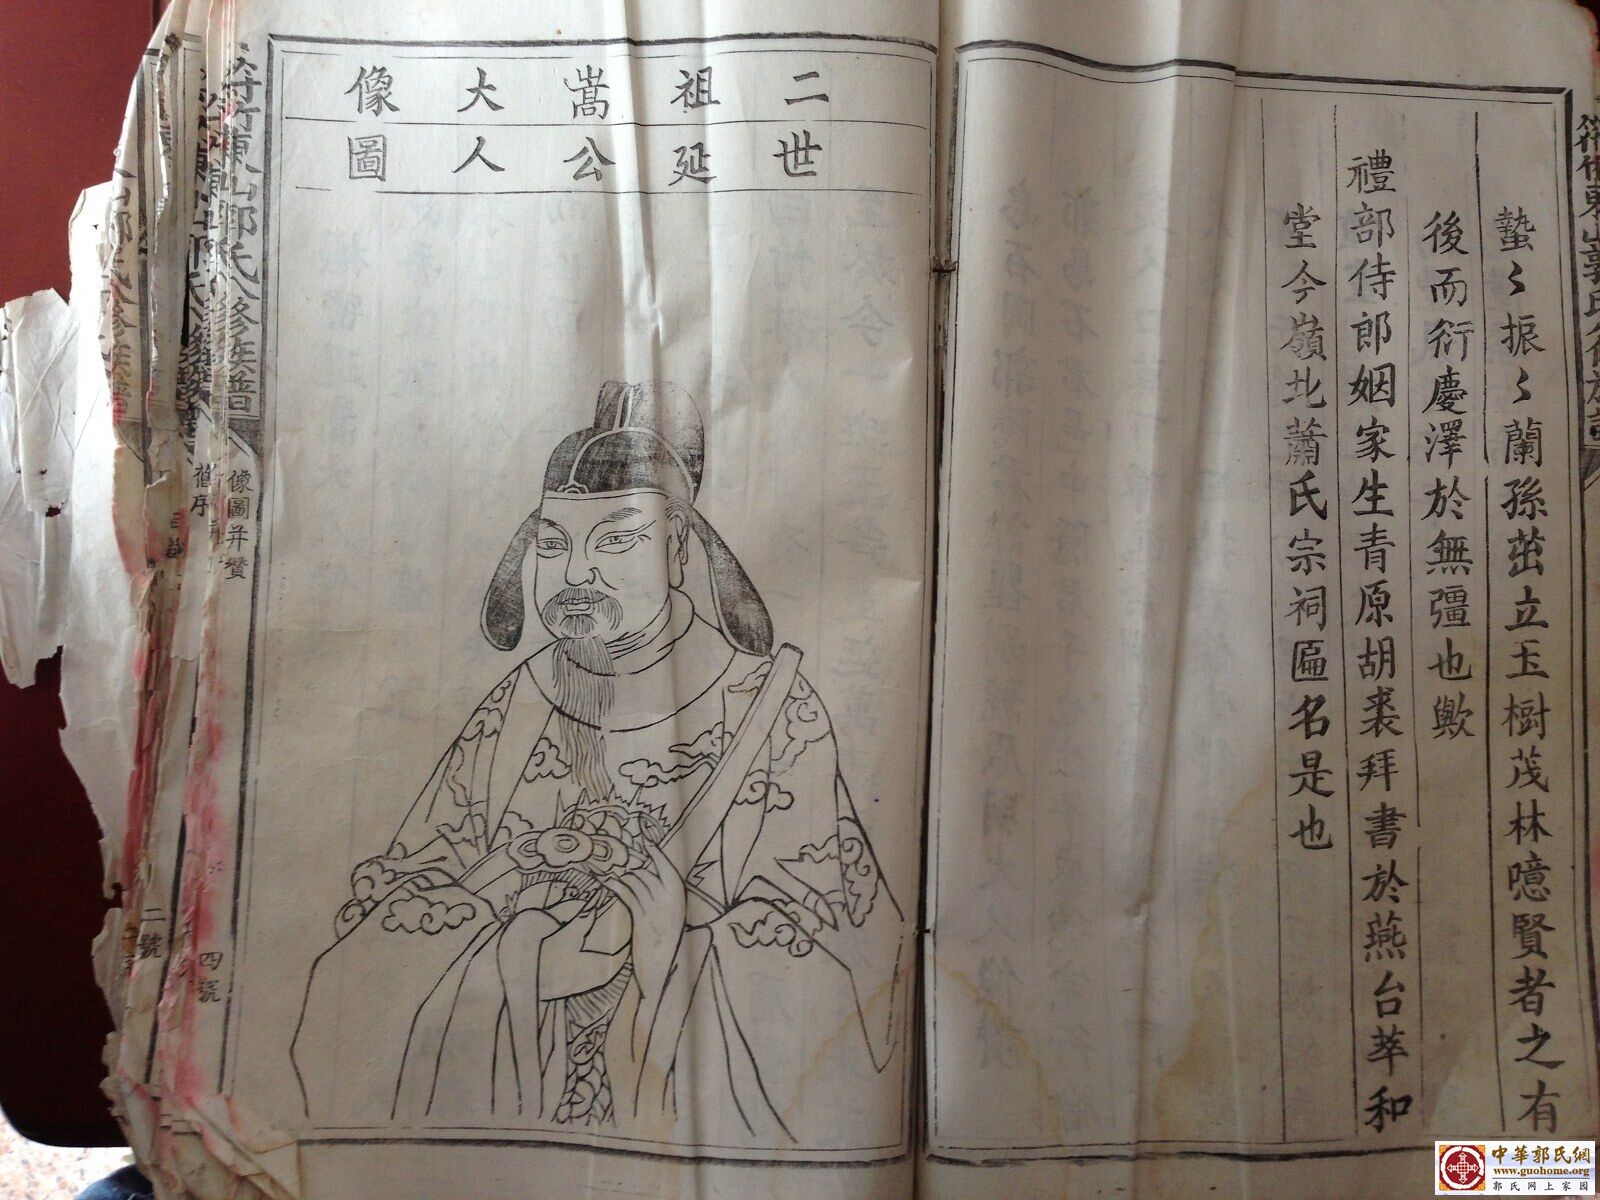 蟄〻振〻蘭孫茁立玉樹茂林噫賢者之有
後而衍慶澤於無彊也歟
禮部侍郎姻家生青原胡裘拜書於燕台萃和
堂今嶺北蕭氏宗祠匾名是也
二世
祖延
嵩公
大人
像圖
東山郭氏八修族譜
像圖并贊
四號
舊序
二號
中華郭氏網
www.guohome.org
郭氏网上家园